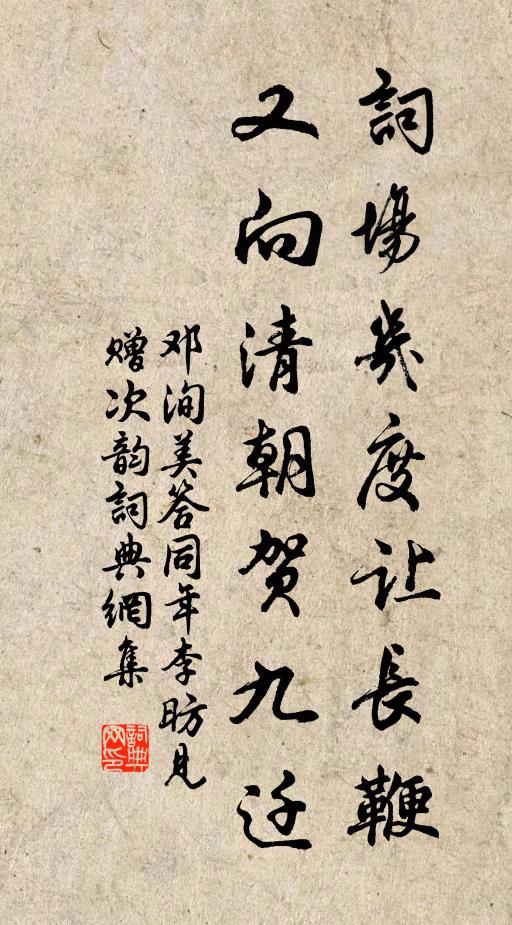 詞場幾度让長鞭
又向清朝贺九迁
邓洵美答同年李昉见
赠次韵詞典網集
詞典網印